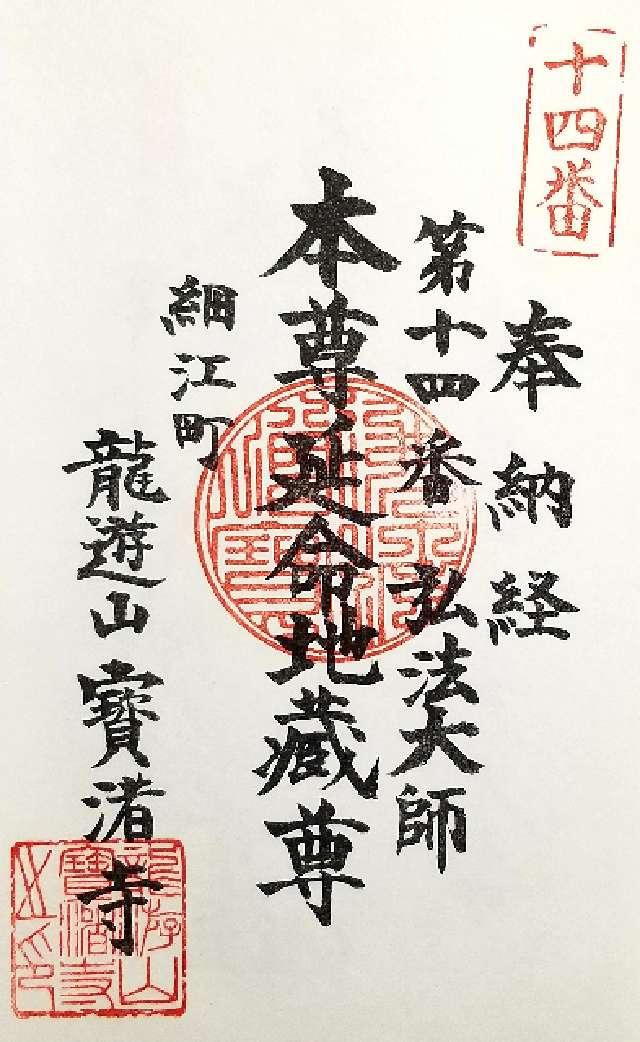 十四番
奉納経
第十四番 弘法大師
本尊延命地蔵尊
細江町
龍遊山 寶渚寺
龍遊山
寶渚寺
之印